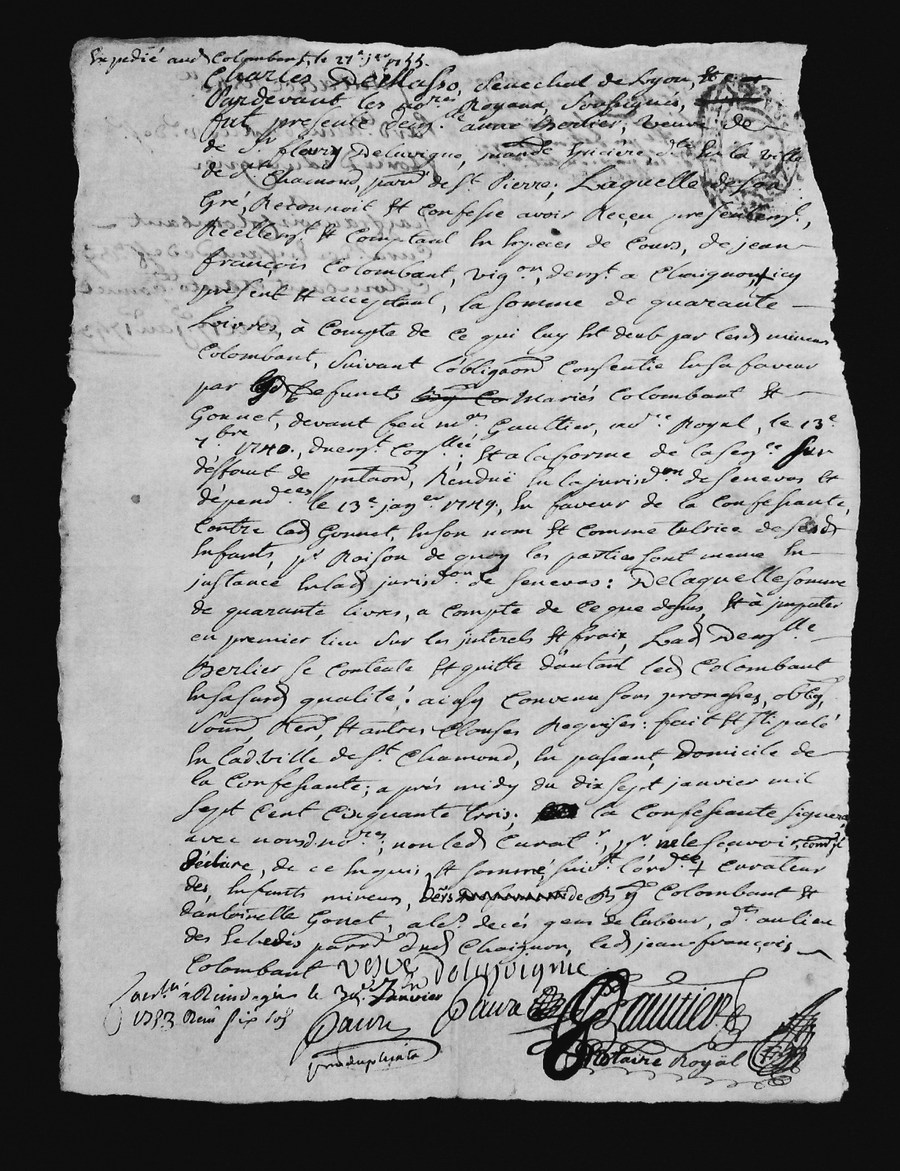 Expedié aud Colombant, le 27e jer 1755.
Charles DeMasso, Senechal de Lyon, Et
Pardevant les nores Royaux Soussignés,
fut presente demlle anne Berlier, veuve de
de Sr fleury Delavigne, mande Epiciere, dte En la ville
de St Chamond, parr de St Pierre; Laquelle de son
Gré, Reconnoit Et Confesse avoir Reçeu presentemt,
Reellemt Et Comptant En Especes de Cours, de jean
françois Colombant, vigon, demt a Chaignon, icy
present Et acceptant, la somme de quarante
Livres, à Compte de ce qui luy Est deub par lesd mineurs
Colombant, Suivant l'obligaon Consentie En sa faveur
par lesd defuncts Mariés Colombant Et
Gonnet, devant feu me Gaultier, nore Royal, le 13e
7bre 1740., duemt Conllé; Et a la forme de la Sence Sur
deffaut de Rendue En la jurisdon de Senevas Et
dépendces le 13e janer 1749, En faveur de la Confessante,
Contre lad Gonnet, En son nom Et Comme tutrice de sesd
Enfants, pr Raison de quoy les parties sont meme En
jnstance En lad jurisdon de Senevas: De laquelle somme
de quarante livres, a Compte de Ce que dessus, Et à jmputer
en premier lieu sur les jnterets Et fraix, Lad Demlle
Berlier se Contente Et quitte d'autant led Colombant
En sa susd qualité; ainsy Convenu sous promesses, oblig,
Soum Ren, Et autres Clauses Requises: fait Et stipulé
En lad ville de St Chamond, En passant, Domicile de
la Confessante; après midy du dix sept janvier mil
Sept Cent Cinquante trois; la Confessante signera
avec nousd nores, non led Curatr, pr ne le sçavoir,
déclare, de ce Enquis Et sommé suivt l'ordce + Curateur
des Enfants mineurs, de Colombant Et
d'antoinette Gonet, ales décés gens de labeur, dts au lieu
des parr dud Chaignon, led jean françois
Colombant veuve Delavignie
Conllé a Rivedegier le 30e Janvier
1753 Reçu six sols
Favre Favre Gaultier
Notaire Royal
pro duplicata